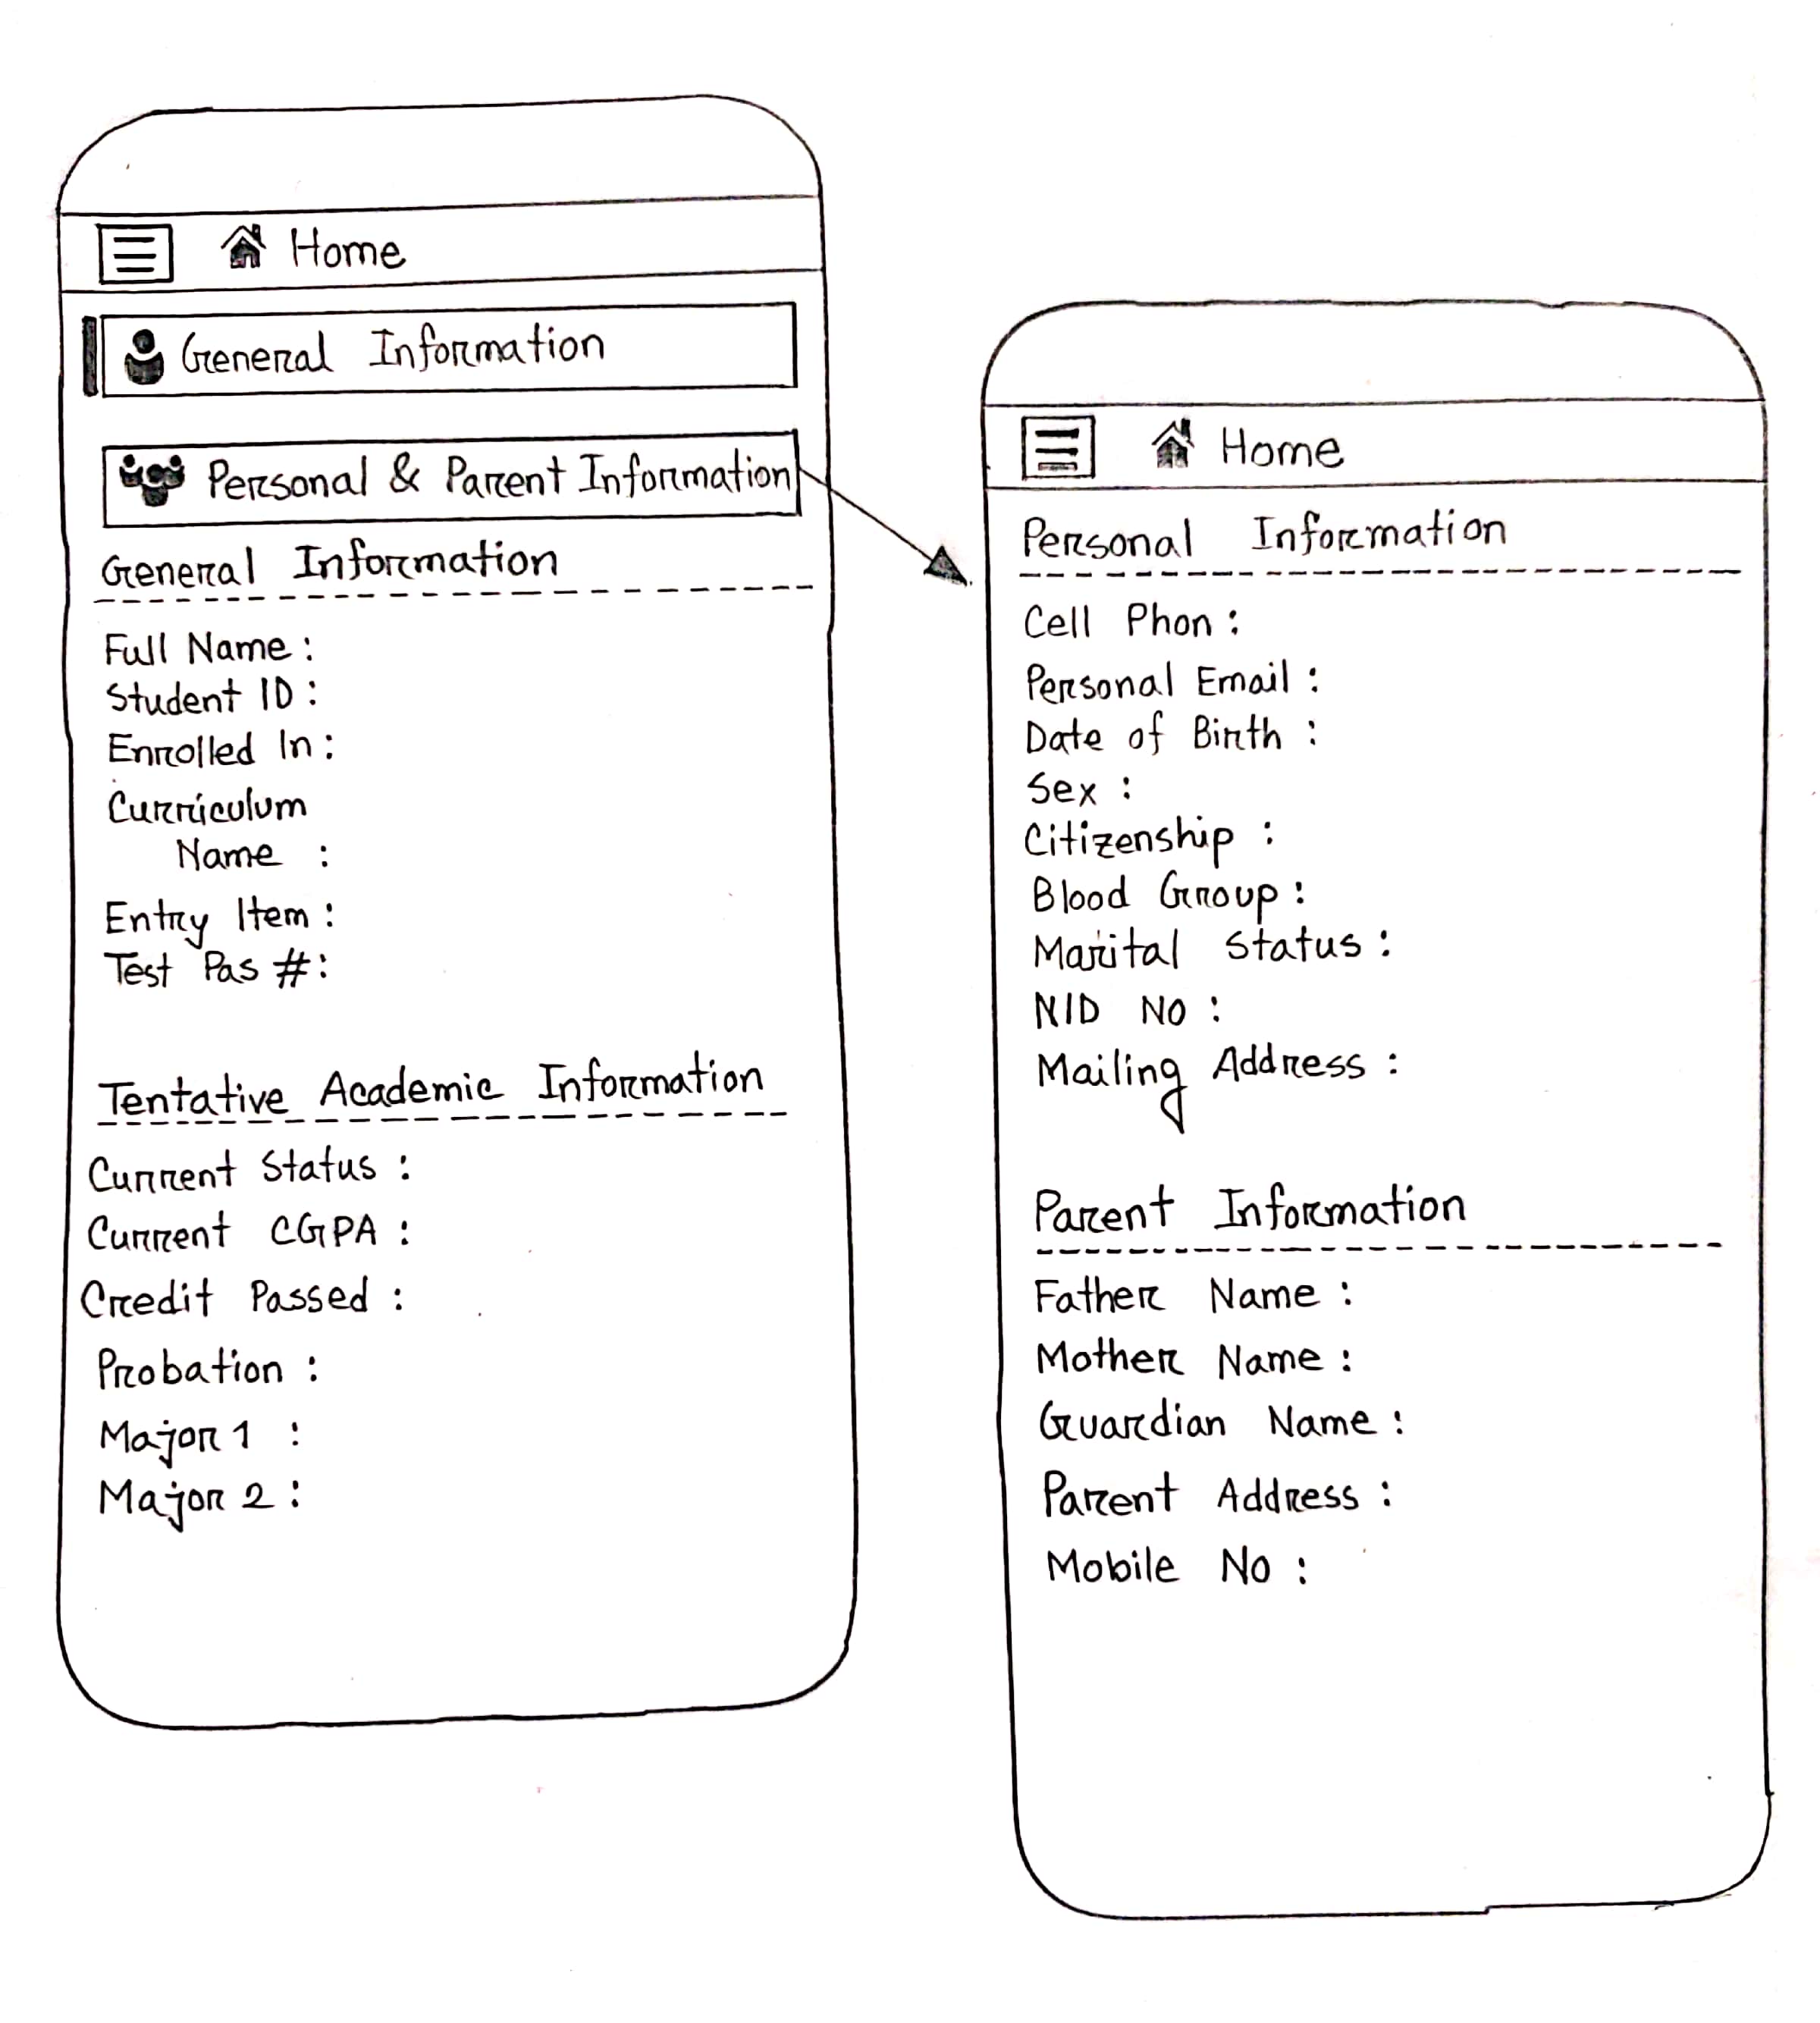 Home
General Information
Personal & Parent Information
General Information
Full Name :
Student ID :
Enrolled In :
Curriculum
Name :
Entry Item :
Test Pas #:
Tentative Academic Information
Current Status :
Current CGPA :
Credit Passed :
Probation :
Major 1 :
Major 2 :
Home
Personal Information
Cell Phon :
Personal Email :
Date of Birth :
Sex :
Citizenship :
Blood Group :
Marital Status :
NID NO :
Mailing Address :
Parent Information
Father Name :
Mother Name :
Guardian Name :
Parent Address :
Mobile No :